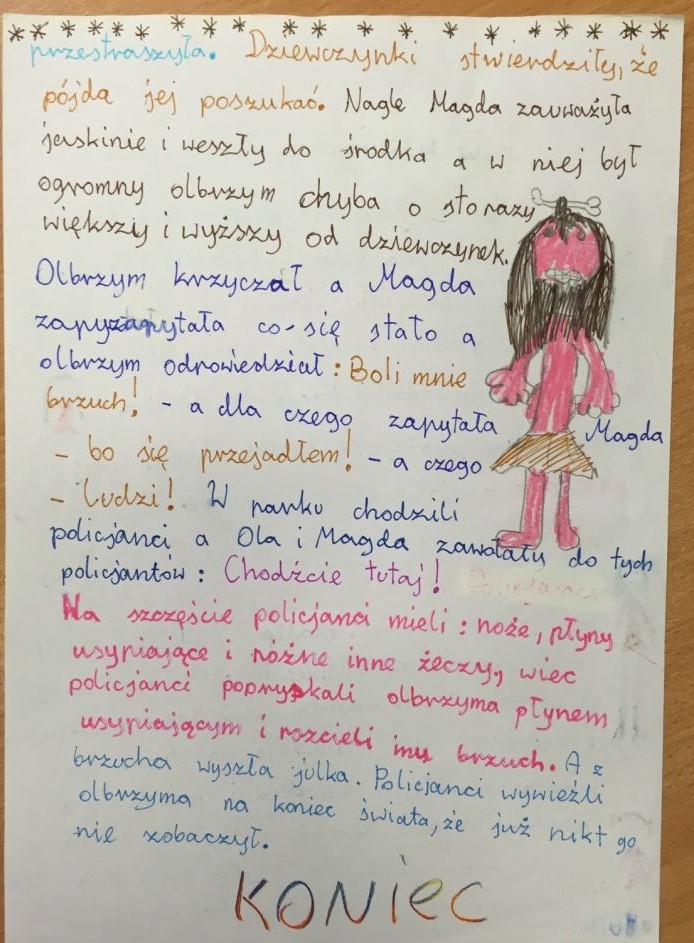 przestraszyła. Dziewczynki stwierdziły, że
pójdą jej poszukać. Nagle Magda zauważyła
jaskinie i weszły do środka a w niej był
ogromny olbrzym chyba o sto razy
większy i wyższy od dziewczynek.
Olbrzym krzyczał a Magda
zapytała co-się stało a
olbrzym odpowiedział: Boli mnie
brzuch! - a dla czego zapytała Magda
- bo się przejadłem! - a czego
- ludzi! W parku chodzili
policjanci a Ola i Magda zawołały do tych
policjantów: Chodźcie tutaj!
Na szczęście policjanci mieli: noże, płyny
usypiające i różne inne żeczy, wiec
policjanci popryskali olbrzyma płynem
usypiającym i rozcieli imu brzuch. A z
brzucha wyszła julka. Policjanci wywieźli
olbrzyma na koniec świata, że już nikt go
nie zobaczył.
KONIEC